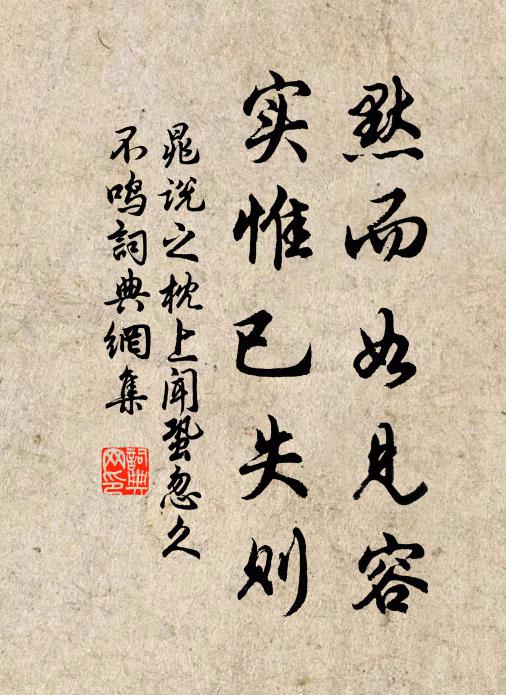 默而如见容
实惟已失则
晁说之枕上闻蛩忽久
不鸣词典网集
词典网印